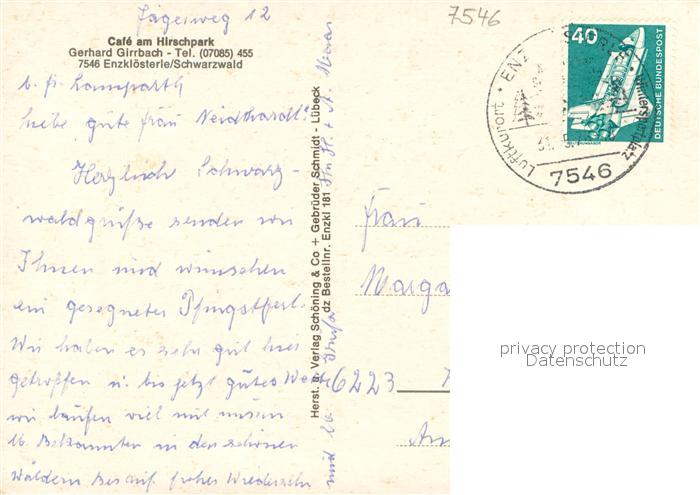 Jägerweg 12
7546
Café am Hirschpark
Gerhard Girrbach - Tel. (07085) 455
7546 Enzklösterle/Schwarzwald
b. Fr. Lamparth
Liebe, gute Frau Neidhardt!
Herzlich Schwarz-
waldgrüße senden wir
Ihnen und wünschen
ein gesegnetes Pfingstfest.
Wir haben es sehr gut hier
getroffen u. bis jetzt gutes Wetter
wir laufen viel mit unsern
16 Bekannten in den schönen
Wäldern Bis auf frohes Wiedersehn
und
Herst. u. Verlag Schöning & Co + Gebrüder Schmidt - Lübeck
dz Bestellnr. Enzkl 181
Frau
Marga
6223
Am
40
DEUTSCHE BUNDESPOST
Luftkurort · ENZ
Wintersportplatz
7546
privacy protection
Datenschutz